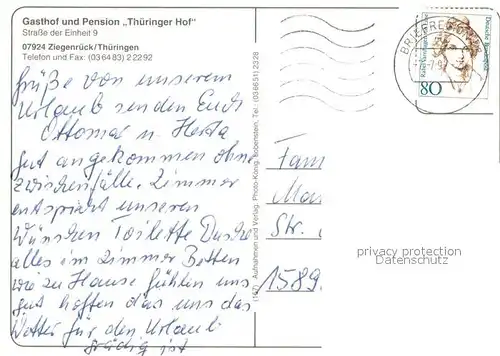 Gasthof und Pension „Thüringer Hof"
Straße der Einheit 9
07924 Ziegenrück/Thüringen
Telefon und Fax: (03 64 83) 2 22 92
Grüße von unserem
Urlaub senden Euch
Ottomar u. Herta
gut angekommen ohne
zwischenfälle. Zimmer
entspricht unseren
Wünschen Toilette Dusche
alles im Zimmer Betten
wie zu Hause fühlen uns
gut hoffen das uns das
Wetter für den Urlaub
gnädig ist
Aufnahmen und Verlag: Photo-König, Lobenstein, Tel. (036651) 2328
BRIEFREGION
Deutsche Bundespost
80
Fam
Str.
1589.
privacy protection
Datenschutz